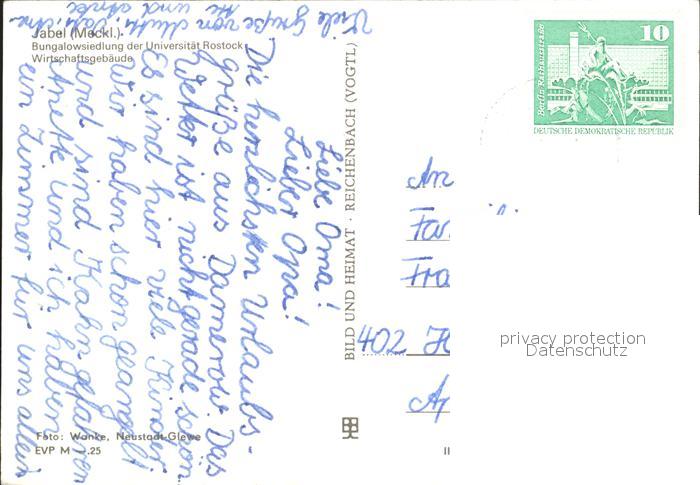 Jabel (Meckl.)
Bungalowsiedlung der Universität Rostock
Wirtschaftsgebäude
Liebe Oma!
Lieber Opa!
Die herzlichsten Urlaubs-
grüße aus Damerow. Das
Wetter ist nicht gerade schön.
Es sind hier viele Kinder.
Wir haben schon geangelt
und sind Kahn gefahren
Anette und ich haben
ein Zimmer für uns allein
Viele Grüße von Mutti, Vati,
und
Foto: Wanke, Neustadt-Glewe
EVP M .25
BILD UND HEIMAT · REICHENBACH (VOGTL)
10
Berlin, Rathausstraße
DEUTSCHE DEMOKRATISCHE REPUBLIK
An
Fam
Fra
402 H
Ap
privacy protection
Datenschutz
II